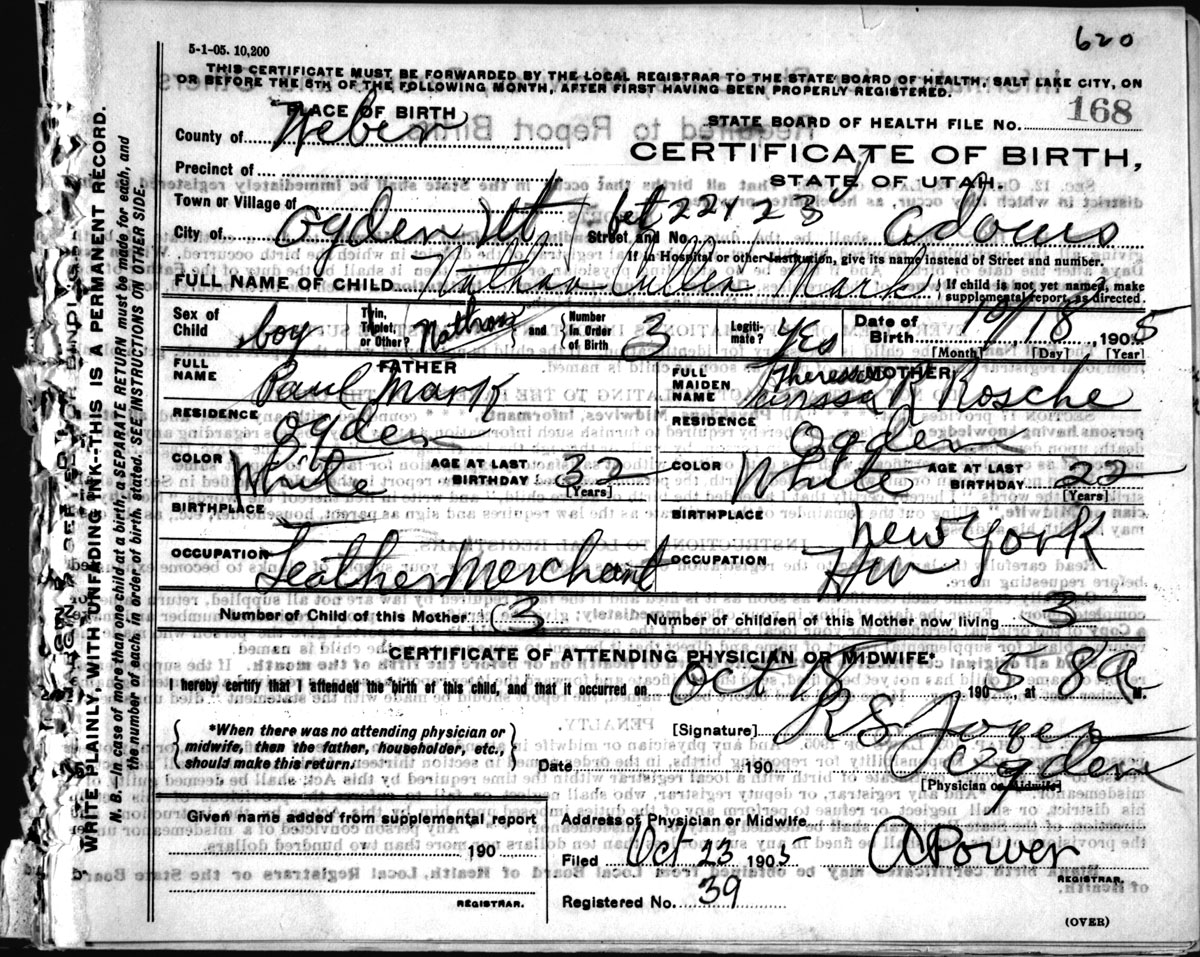 620
5-1-05. 10,200
THIS CERTIFICATE MUST BE FORWARDED BY THE LOCAL REGISTRAR TO THE STATE BOARD OF HEALTH, SALT LAKE CITY, ON
OR BEFORE THE 5TH OF THE FOLLOWING MONTH, AFTER FIRST HAVING BEEN PROPERLY REGISTERED.
PLACE OF BIRTH
STATE BOARD OF HEALTH FILE No. 168
County of Weber
CERTIFICATE OF BIRTH,
STATE OF UTAH.
Precinct of
Town or Village of
City of Ogden Ut Street and No. bet 22 & 23d Adams
If in Hospital or other Institution, give its name instead of Street and number.
FULL NAME OF CHILD Nathan Mark { If child is not yet named, make supplemental report, as directed.
Sex of Child boy Twin, Triplet, or Other? Nathan and { Number in Order of Birth 3 Legitimate? yes Date of Birth 10/18, 1905
[Month] [Day] [Year]
FATHER
FULL NAME Paul Mark
MOTHER
FULL MAIDEN NAME Theressa R Rosche
RESIDENCE Ogden
RESIDENCE Ogden
COLOR White AGE AT LAST BIRTHDAY 32 [Years]
COLOR White AGE AT LAST BIRTHDAY 22 [Years]
BIRTHPLACE
BIRTHPLACE New York
OCCUPATION Leather Merchant
OCCUPATION Hw
Number of Child of this Mother 3 Number of children of this Mother now living 3
CERTIFICATE OF ATTENDING PHYSICIAN OR MIDWIFE*
I hereby certify that I attended the birth of this child, and that it occurred on Oct 18 1905, at 8 a M.
{ *When there was no attending physician or midwife, then the father, householder, etc., should make this return. }
[Signature] R S
Date 190
Ogden
[Physician or Midwife]
Given name added from supplemental report
190
REGISTRAR.
Address of Physician or Midwife
Filed Oct 23 1905 A Power
REGISTRAR.
Registered No. 39
(OVER)
WRITE PLAINLY, WITH UNFADING INK--THIS IS A PERMANENT RECORD.
N. B.--In case of more than one child at a birth, a SEPARATE RETURN must be made for each, and
the number of each, in order of birth, stated. SEE INSTRUCTIONS ON OTHER SIDE.